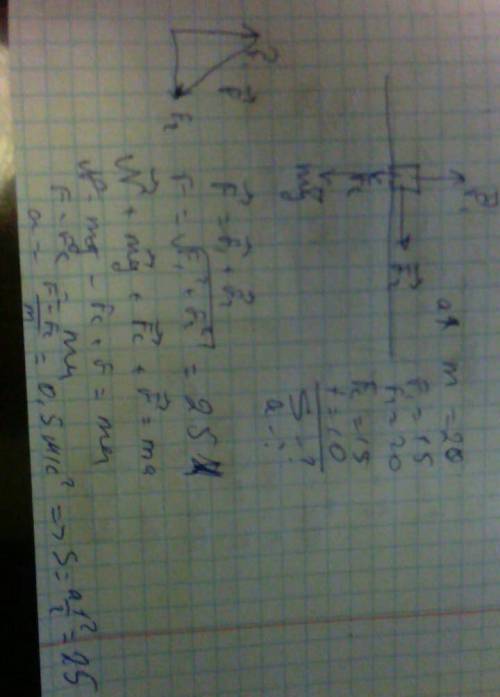 m = 20
F₁ = 15
F₂ = 20
Fc = 15
t = 10
S - ?
a - ?
F₁
F₂
Fc
mg
F₂
F
F = F₁ + F₂
F = √F₁² + F₂² = 25 Н
N + mg + Fc + F = ma
N - mg - Fc + F = ma
F - Fc = ma
a = F - Fc / m = 0,5 м/с² => S = at²/2 = 25